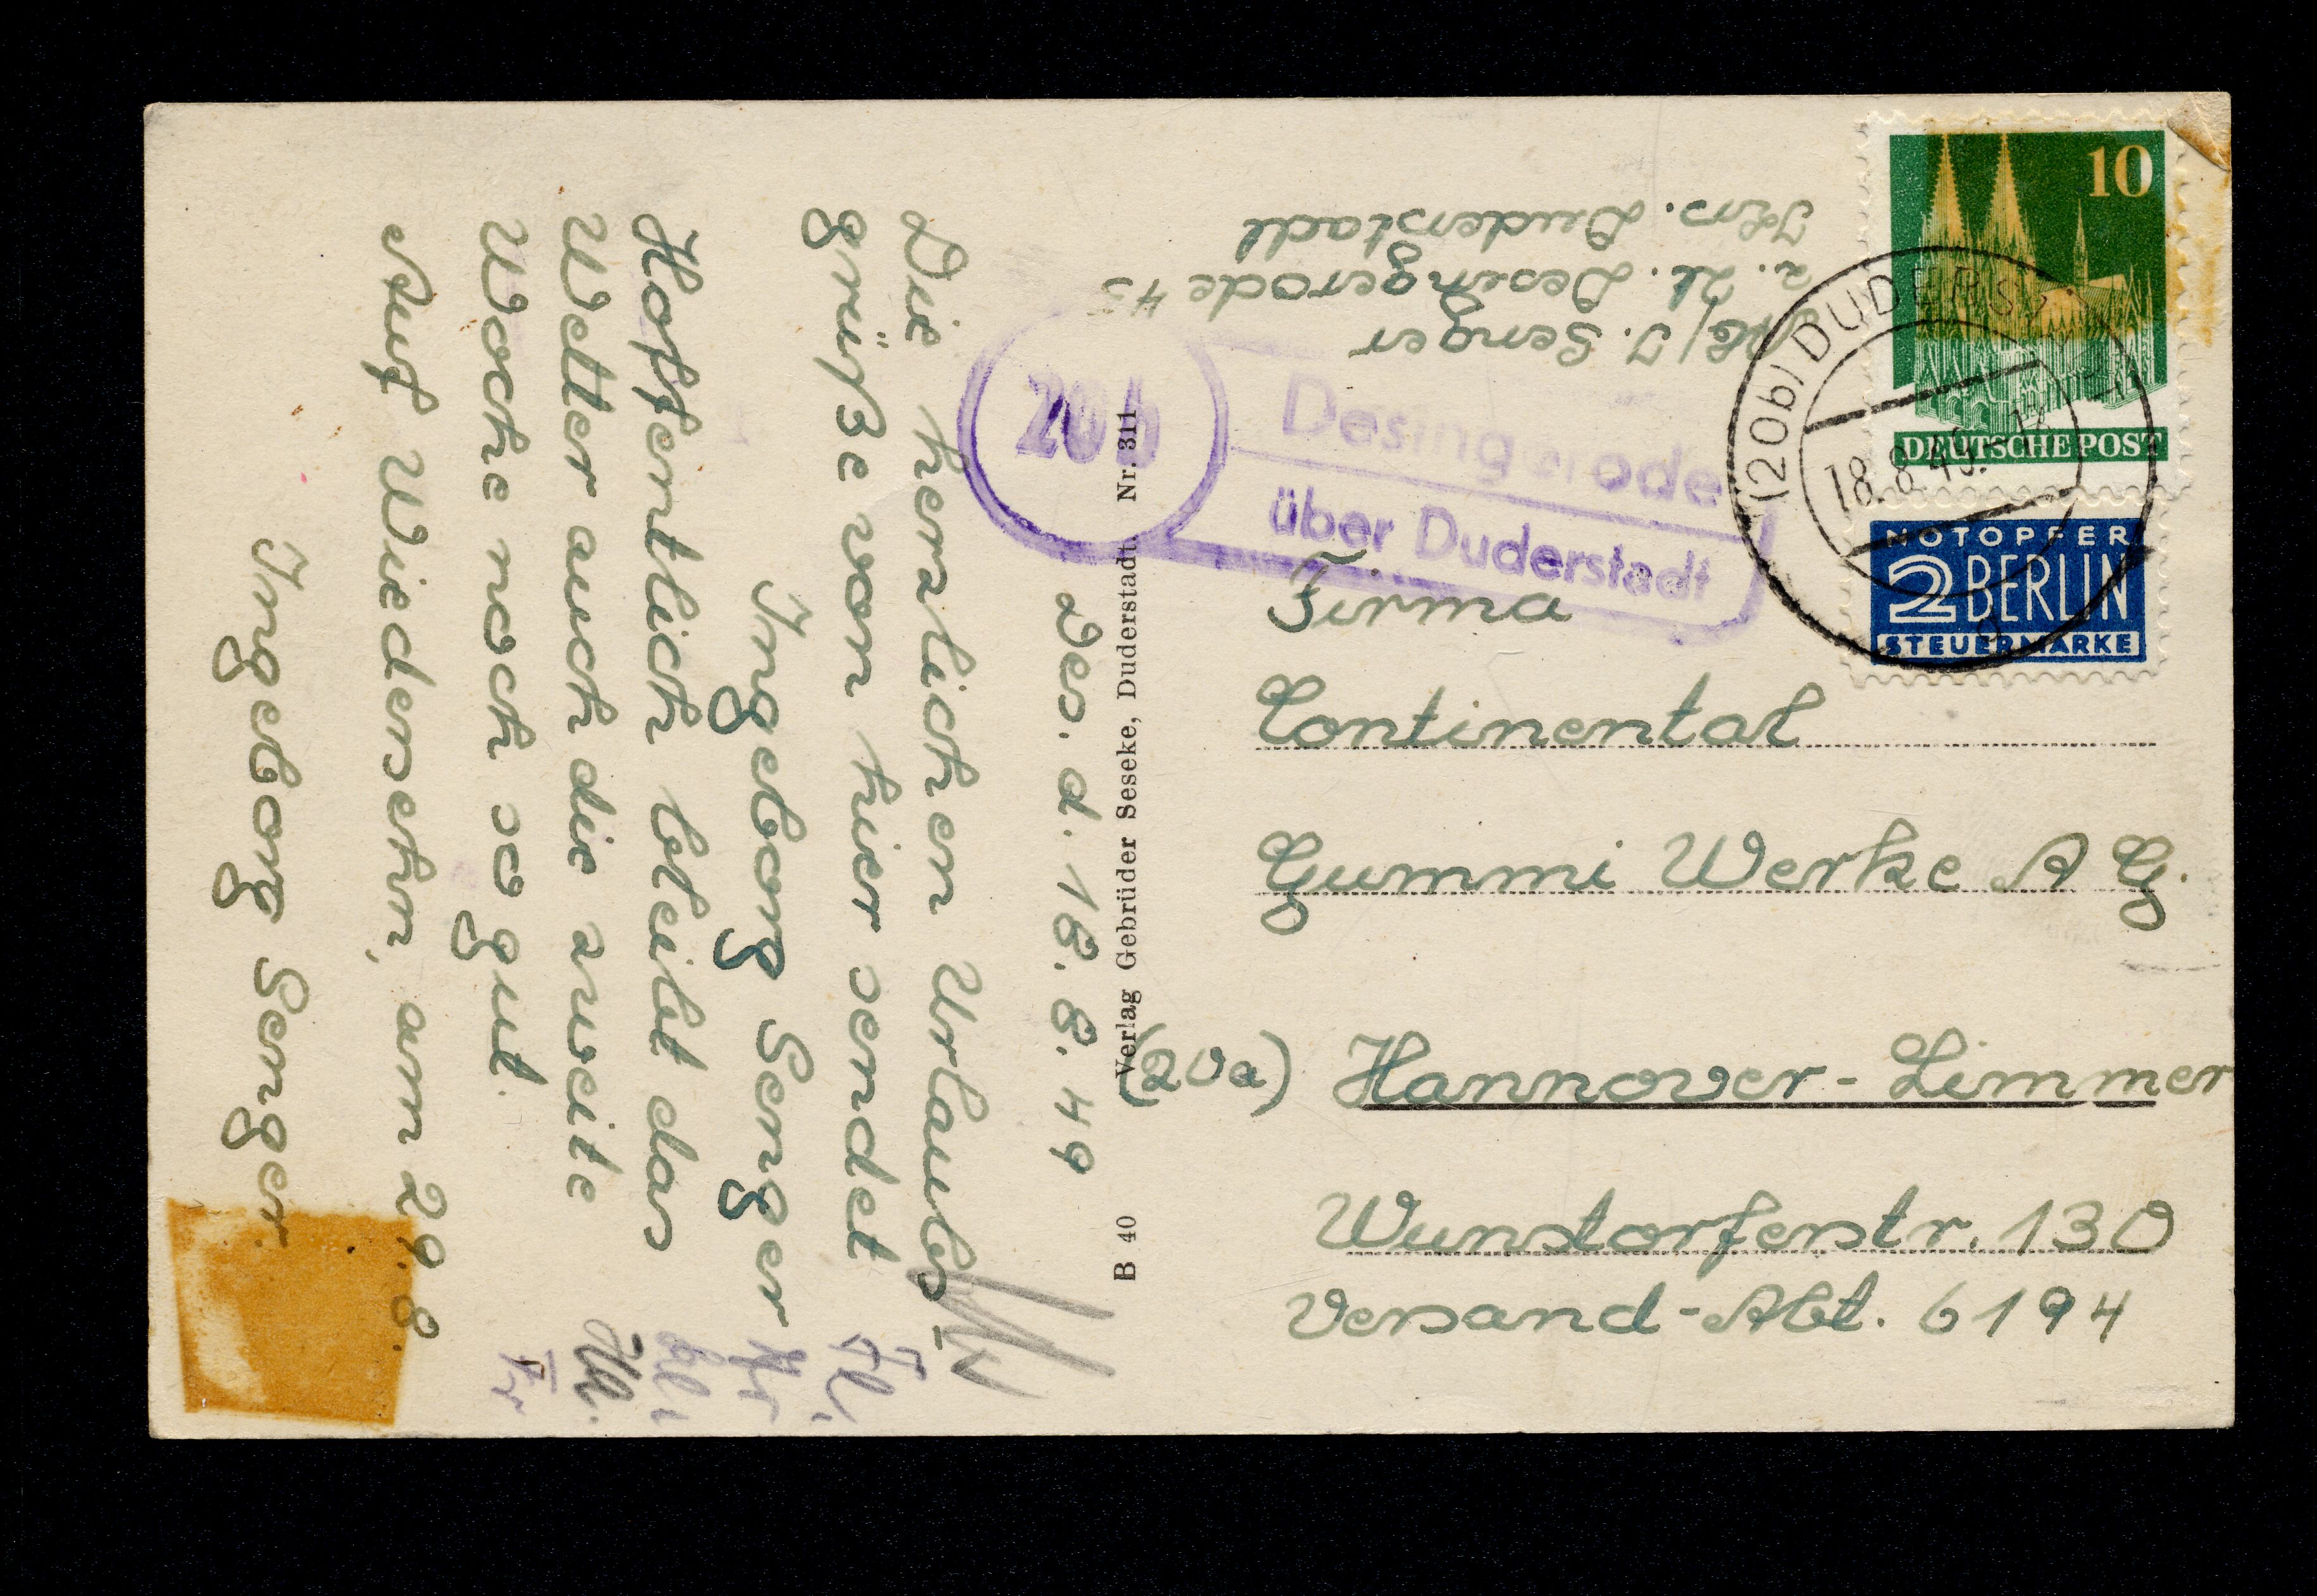 Des. d. 18. 8. 49
Die herzlichen Urlaubs-
grüße von hier sendet
Ingeborg Senger
Hoffentlich bleibt das
Wetter auch die zweite
Woche noch so gut.
Auf Wiedersehn, am 29. 8.
Ingeborg Senger
B 40 Verlag Gebrüder Seseke, Duderstadt. Nr. 311
J. Senger
z. Zt. Desingerode 43
Krs. Duderstadt
20b
Desingerode
über Duderstadt
10
DEUTSCHE POST
(20b) DUDERST
18.8.49.
NOTOPFER
2 BERLIN
STEUERMARKE
Firma
Continental
Gummi Werke A G.
(20a) Hannover-Limmer
Wunstorferstr. 130
Versand-Abt. 6194